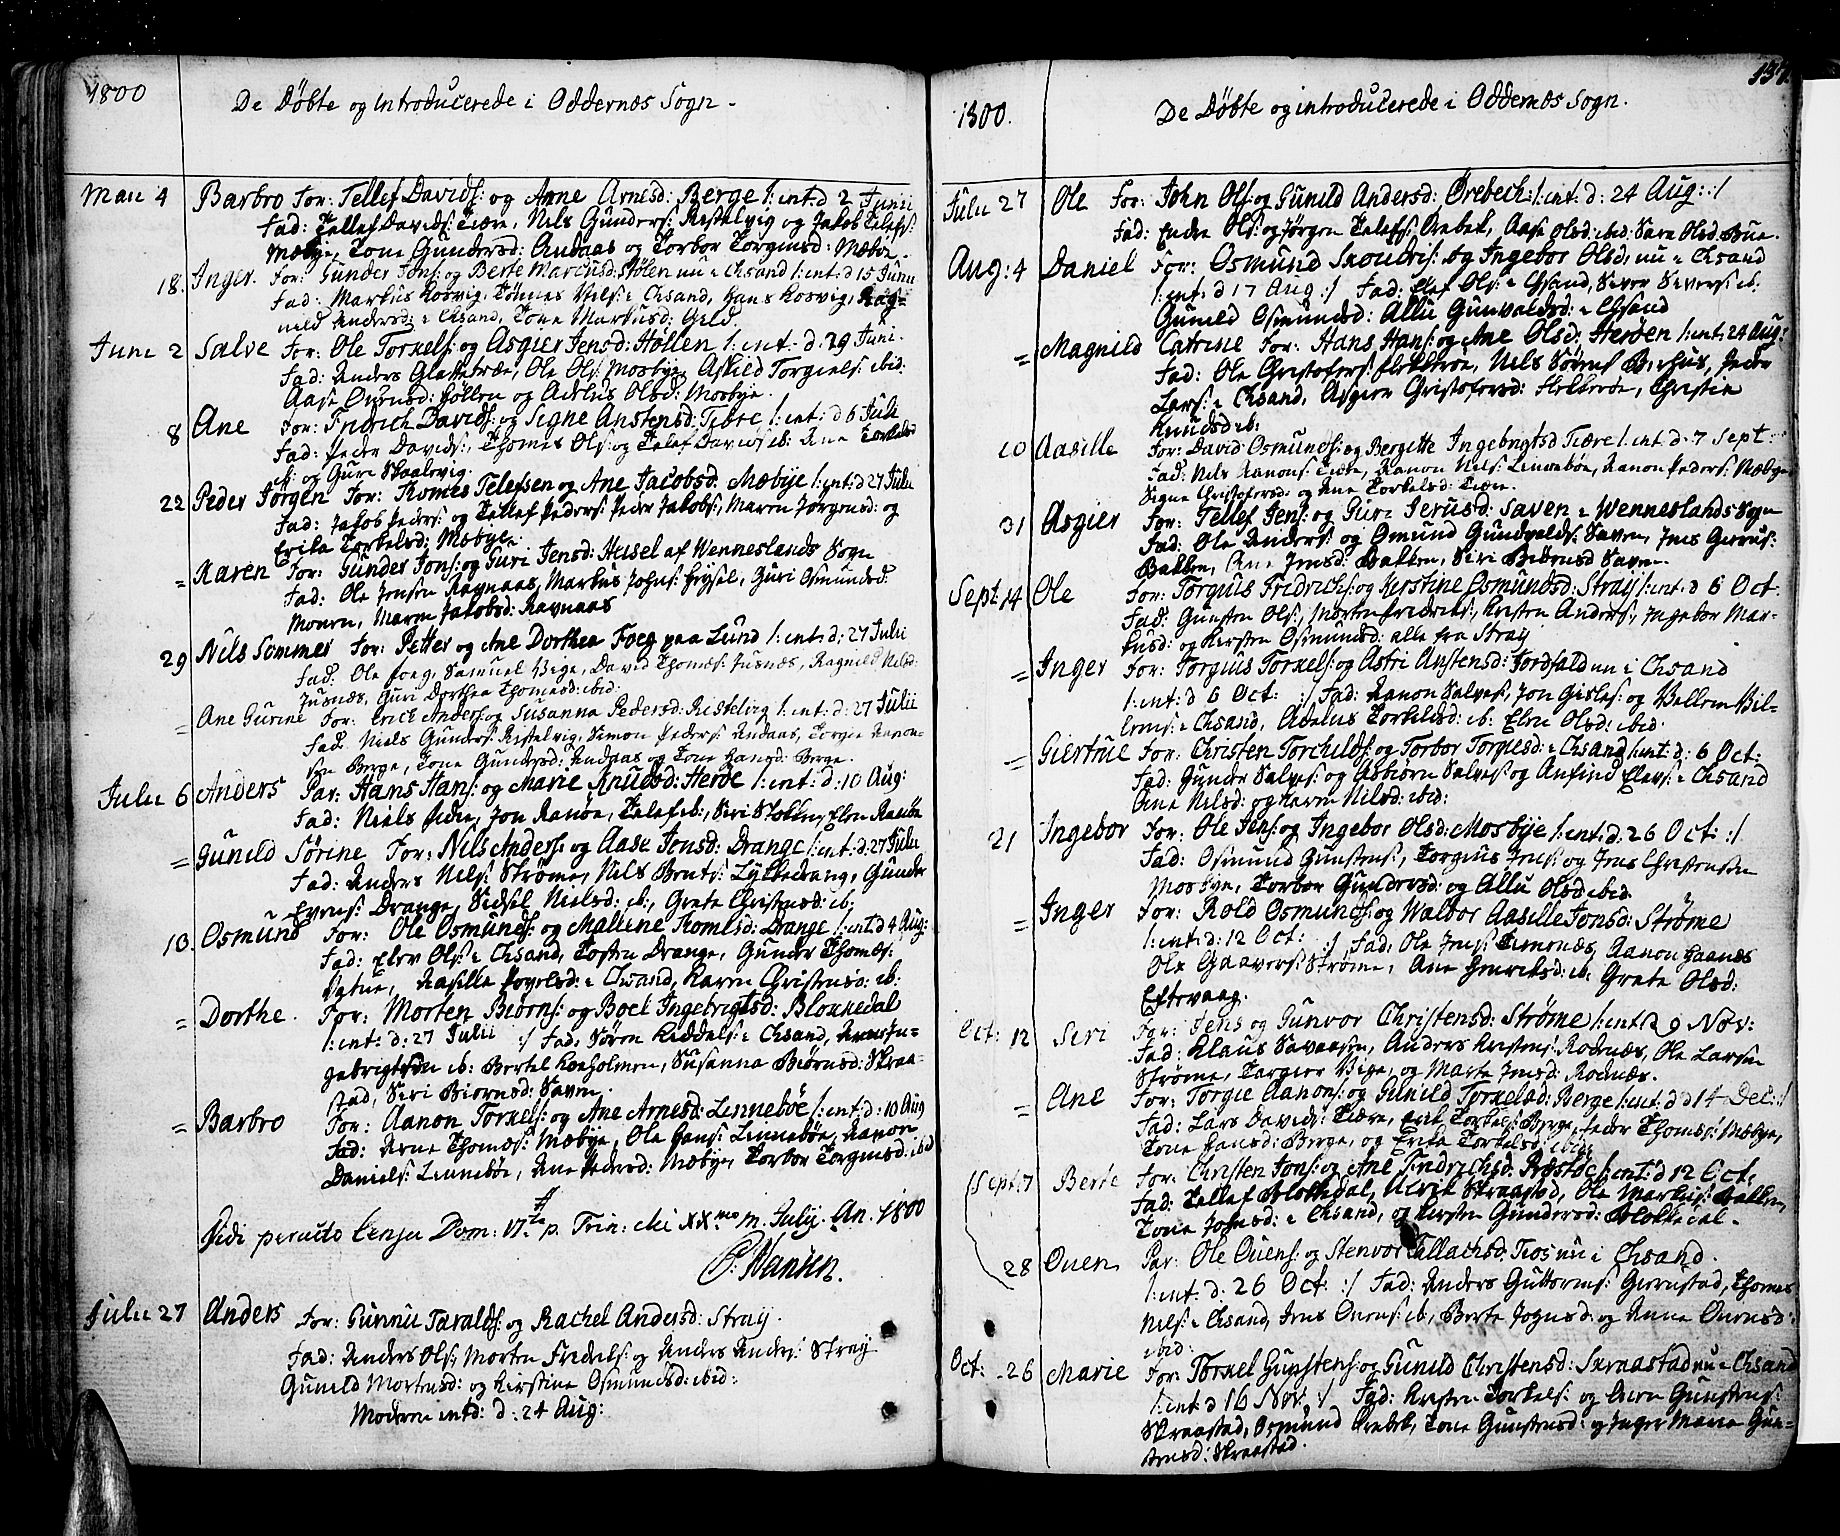 1800
De Döbte og introducerede i Oddernæs Sogn -
Maii 4 Barbro For: Tellef Davids: og Anne Arnesd: Berge /: int: d 2 Junii
Fad: Tellef Davids: Tiære, Nils Gunders: Ristelvig og Jakob Telefs:
Mæbye, Tone Gundersd: Andaas og Torbor Torgiusd: Mæbye.
18. Inger. For: Gunder Jons: og Berte Marcusd: Stölen nu i Chsand /: int: d 15 Junii
Fad: Markus Kosvig, Tönnes Nils: i Chsand, Hans Kosvig, Rag-
nild Andersd: i Chsand, Tone Markusd: Gield.
Junii 2 Salve For: Ole Torkels: og Asgier Jensd: Höllen /: int: d: 29 Juni.
Fad: Anders Glattetræ, Ole Ols: Mosbye, Askild Torgiels: ibid:
Aase Ouensd: Höllen og Adelus Olsd: Mosbye.
8 Ane For: Fridrich Davids: og Signe Anstensd: Tiære /: int: d 6 Julii
Fad: Peder Davids:, Thomes Ols: og Telef Davids: ib: Ane Torkelsd
ib: og Guri Skaalevig.
22 Peder Jörgen For: Thomes Telefsen og Ane Jacobsd: Mæbye /: int: d 27 Julii
Fad: Jakob Peders: og Tellef Peders: Peder Jakobs:, Maren Jörgensd: og
Erika Torkelsd: Mæbye.
= Karen For: Gunder Jons: og Guri Jensd: Heisel af Wenneslands Sogn
Fad: Ole Jensen Ravnaas, Markus Johns: Heysel, Guri Osmundsd:
Mouen, Maren Jakobsd: Ravnaas
29 Nils Sommer For: Petter og Ane Dorthea Foeg paa Lund /: int: d: 27 Julii
Fad: Ole Foeg, Samuel Vige, David Thomes: Jusnæs, Ragnild Nilsd:
Jusnæs, Guri Dorthea Thomesd: ibid:
= Ane Gurine For: Erich Anders: og Susanna Pedersd: Ristelvig /: int: d: 27 Julii
Fad: Niels Gunders: Ristelvig, Simon Peders: Andaas, Torgie Aanon-
sen Berge, Tone Gundersd: Andaas og Tone Hansd: Berge.
Julii 6 Anders Par: Hans Hans: og Marie Knudsd: Heröe /: int: d: 10 Aug:
Fad: Niels Udöe, Jon Randöe, Telef ib:, Siri Stokken, Elen Randöe
= Gunild Sörine For: Nils Anders: og Aase Jensd: Drange /: int: d: 27 Julii
Fad: Anders Nils: Ströme, Nils Bents: Lykkedrang, Gunder
Evens: Drange, Sidsel Nielsd: ib:, Grete Christensd: ib:
13. Osmund For: Ole Osmunds: og Mallene Tomesd: Drange /: int: d 4 Aug:
Fad: Elev Ols: i Chsand, Tosten Drange, Gunder Thomes:
Vatne, Aasille Povelsd: i Chsand, Karen Christensd: ib:
= Dorthe. For: Morten Biörns: og Boel Ingebrigtsd: Blokkedal
/: int: d: 27 Julii :/ Fad: Sören Keddels: i Chsand, Aanen In-
gebrigtsen ib: Bertel Korsholmen, Susanna Biörnsd: Skraa-
stad, Siri Biornsd: Saven.
= Barbro For: Aanon Torkels: og Ane Arnesd: Linneböe /: int: d: 10 Aug
Fad: Arne Thomes: Mæbye, Ole Hans: Linneböe, Aanon
Daniels: Linneböe, Ane Pedersd: Mæbye, Torbor Torgiusd: ibid
Vidi peracto Censu Dom: VI p. Trin: die XX m. July. An. 1800
P. Hansen.
Julii 27 Anders For: Gunnu Taralds: og Rachel Andersd: Stray.
Fad: Anders Ols:, Morten Fridriks: og Anders Anders: Stray
Gunild Mortensd: og Kirstine Osmundsd: ibid:
Moderen intd: d: 24 Aug:
137
1800.
De Döbte og introducerede i Oddernæs Sogn.
Julii 27 Ole For: John Ols: og Gunild Andersd: Örebech: /: int: d: 24 Aug: :/
Fad: Endre Ols: og Jörgen Telefs: Örebek, Aase Olsd: ibid: Sara Olsd: Bue.
Aug: 4 Daniel For: Osmund Skoudvi: og Ingebor Olsd: nu i Chsand
/: int: d 17 Aug :/ Fad: Elef Ols: i Chsand, Siver Sivers: ib:
Gunild Osmundsd: Allu Gunvaldsd: i Chsand
= Magnild Catrine For: Hans Hans: og Ane Olsd: Heröen /: int: 24 Aug:
Fad: Ole Christofers: Flekkeröe, Nils Sörens: Birhus, Peder
Lars: i Chsand, Asgier Christofersd: Flekkeröe, Christin
Knudsd: ib:
10 Aasille For: David Osmunds: og Bergitte Ingebrigtsd: Tiære /: int: d: 7 Sept:
Fad: Nils Aanons: Tiære, Aanon Nils: Linneböe, Aanon Peders: Mæbye
Signe Christofersd: og Ane Torkelsd: Tiære.
31 Asgier For: Tellef Jens: og Guri Jerusd: Saven i Wenneslands Sogn
Fad: Ole Anders: og Osmund Gundvalds: Saven, Jens Gierus:
Bakken, Ane Jensd: Bakken, Siri Biörnsd: Saven.
Sept: 14 Ole For: Torgius Fridrichs: og Kirstine Osmundsd: Stray /: int: d 6 Oct:
Fad: Gunsten Ols:, Morten Fredriks:, Kristen Anders:, Ingebor Mar-
kusd: og Kirsten Osmundsd: alle fra Stray
= Inger For: Torgius Torkels: og Astri Anstensd: Jordfald nu i Chsand
/: int: d 6 Oct: :/ Fad: Aanon Salves:, Jon Gisles: og Vellom Vil-
loms: i Chsand, Adelus Torkildsd: ib: Elen Olsd: ibid.
= Giertrue For: Christen Torchilds: og Torbor Torgesd: i Chsand /: int: d: 6 Oct:
Fad: Gunder Salves: og Asbiörn Salves: og Anfind Elevs: i Chsand
Ane Nilsd: og Karen Nilsd: ibid:
21 Ingebor For: Ole Jens: og Ingebor Olsd: Mosbye /: int: d: 26 Oct: :/
Fad: Osmund Gunstens:, Torgius Jens: og Jens Christensen
Mosbye, Torbor Gundersd: og Allu Olsd: ibid
= Inger For: Rold Osmunds: og Walbor Aasille Jonsd: Ströme
/: int: d: 12 Oct: :/ Fad: Ole Jens: Timenæs, Aanon Haanæs
Ole Gaavers: Ströme, Ane Henriksd: ib: Grete Olsd:
Eftevaag.
Oct: 12 Siri For: Jens og Gunvor Christensd: Ströme /: int: d 9 Nov:
Fad: Klaus Savaasen, Anders Kristens: Roenæs, Ole Larsen
Ströme, Targier Vige, og Marte Jensd: Roenæs.
= Ane For: Torgie Aanons: og Gunild Torkelsd: Berge /: int: d 14 Dec: :/
Fad: Lars Davids: Tiære, Erik Torkels: Berge, Peder Thomes: Mæbye,
Tone Hansd: Berge, og Erika Torkelsd: ibid:
Sept: 7 Berte For: Christen Jons: og Ane Fridrichsd: Præstöe /: int: d 12 Oct:
Fad: Tellef Blokkedal, Ulrik Skraastad, Ole Markus: Bakken,
Tone Johnsd: i Chsand, og Kirsten Gundersd: Blokkedal -
28 Ouen Par: Ole Ouens: og Stenvor Tallachsd: Tios nu i Chsand.
/: int: d: 26 Oct: :/ Fad: Anders Guttorms: Gierrustad, Thomes
Nils: i Chsand, Jens Ouens: ib, Berte Johnsd: og Anna Ouensd:
ibid:
Oct: 26 Marie For: Torkel Gunstens: og Gunild Christensd: Skraastad nu i Chsand
/: int: d 16 Nov: :/ Fad: Kristen Torkels: og Even Gunstens:
Skraastad, Osmund Örebek, Tone Gunstensd: og Inger Marie Gun-
stensd: Skraastad.